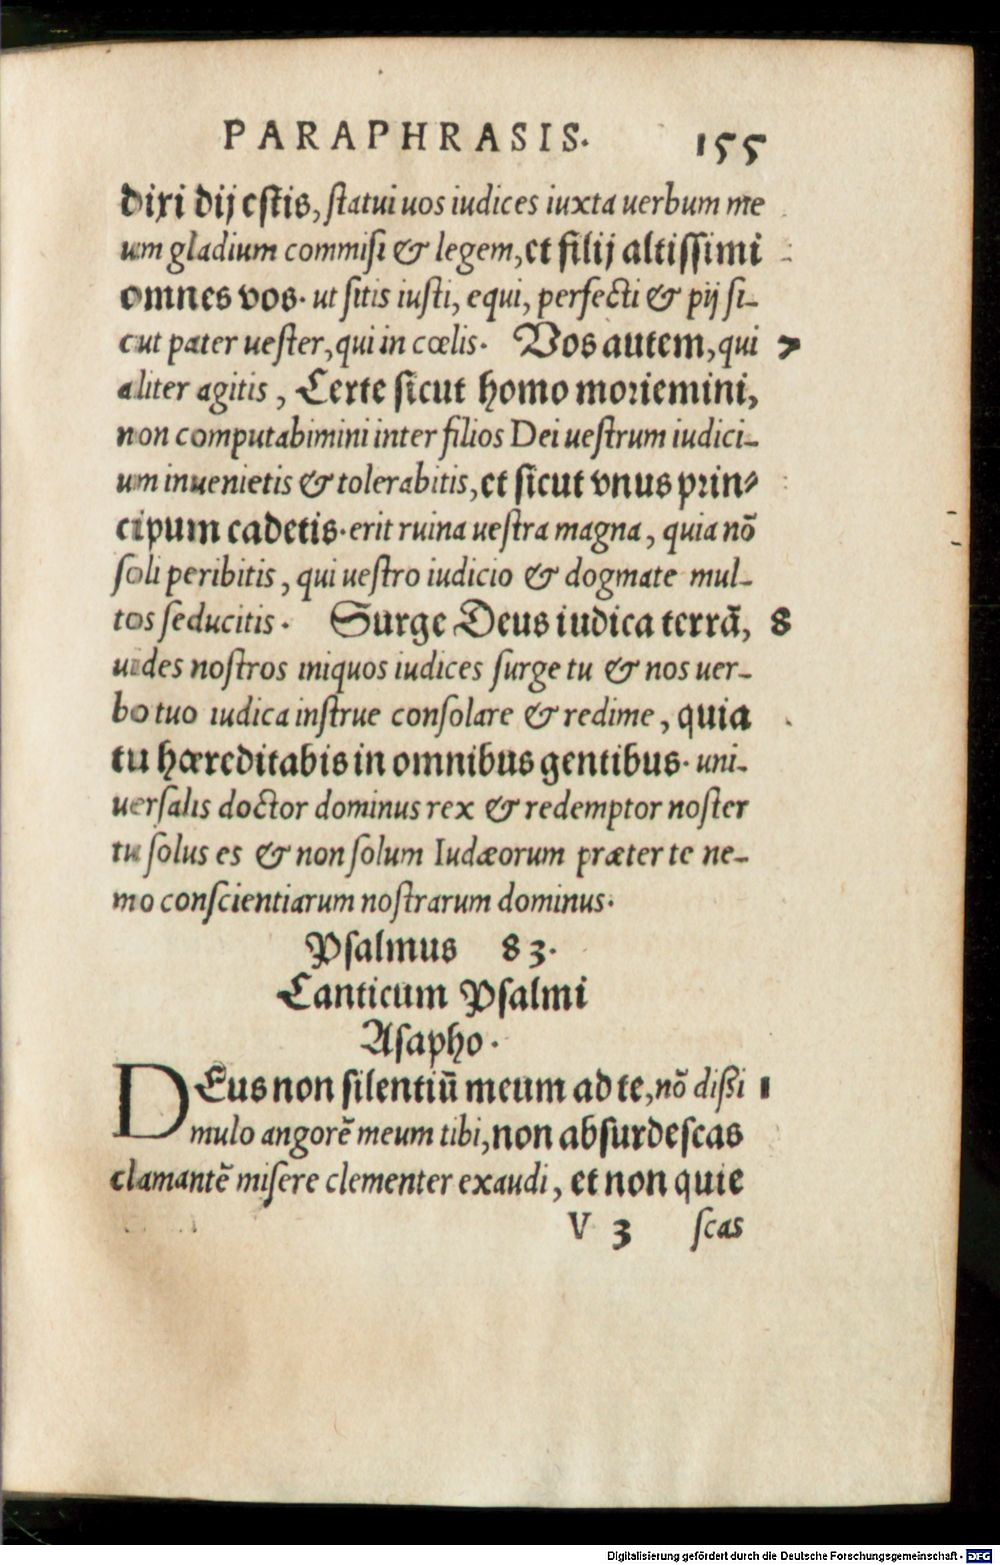 PARAPHRASIS. 155
dixi dij estis, statui uos iudices iuxta uerbum me
um gladium commisi & legem, et filij altissimi
omnes vos. ut sitis iusti, equi, perfecti & pij si-
cut pater uester, qui in cœlis. Vos autem, qui 7
aliter agitis, Certe sicut homo moriemini,
non computabimini inter filios Dei uestrum iudici-
um inuenietis & tolerabitis, et sicut vnus prin-
cipum cadetis. erit ruina uestra magna, quia nō
soli peribitis, qui uestro iudicio & dogmate mul-
tos seducitis. Surge Deus iudica terrā, 8
uides nostros iniquos iudices surge tu & nos uer-
bo tuo iudica instrue consolare & redime, quia
tu hæreditabis in omnibus gentibus. uni-
uersalis doctor dominus rex & redemptor noster
tu solus es & non solum Iudæorum præter te ne-
mo conscientiarum nostrarum dominus.
Psalmus 83.
Canticum Psalmi
Asapho.
DEus non silentiū meum ad te, nō dißi 1
mulo angorē meum tibi, non absurdescas
clamantē misere clementer exaudi, et non quie
V 3 scas
Digitalisierung gefördert durch die Deutsche Forschungsgemeinschaft - DFG